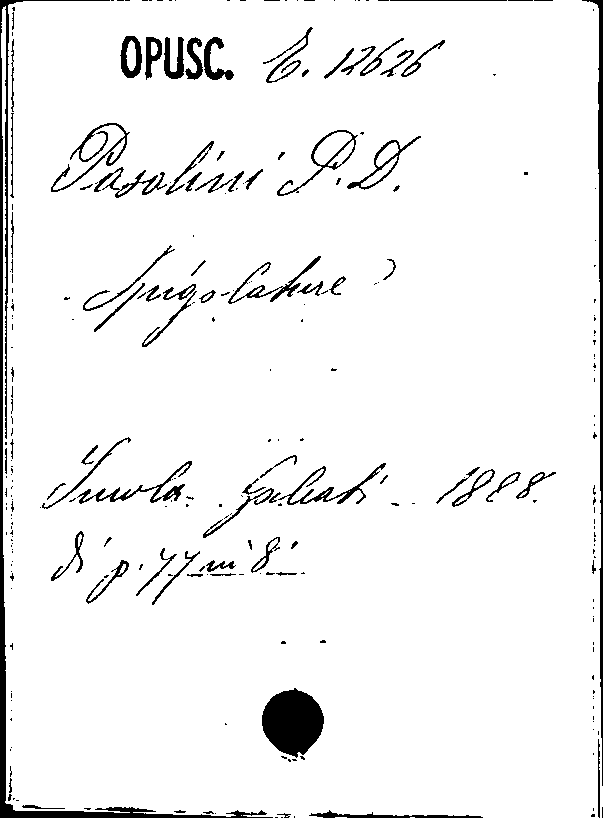 OPUSC. E. 12626
Pasolini P. D.
Spigolature
Imola - Galeati - 1888.
di p. 77 in 8°